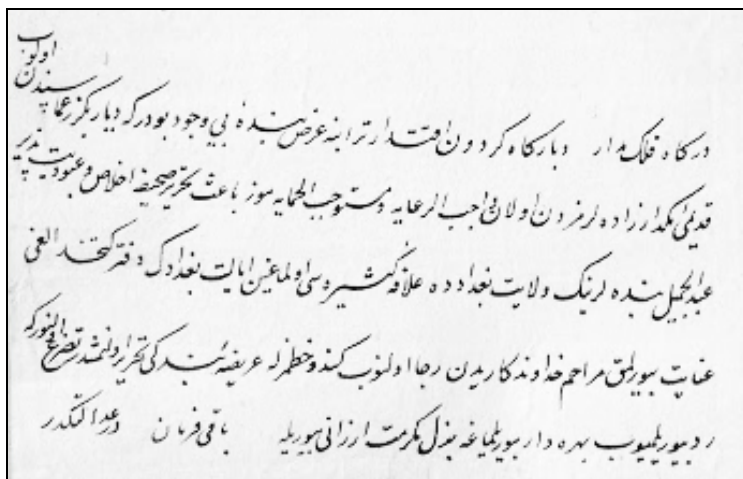 درگاه فلک مدار و بارگاه گردون اقتدار ترابنه عرض بنده بی وجود بودر که دیار بکر زعماسندن اولوب
قدیمی امکدارزاده لرمزدن اولان واجب الرعایه و مستوجب الحمایه موز باعث تحریر صحیفه اخلاص و عبودیت پذیر
عبد الجلیل بنده لرینک ولایت بغدادده علاقه کثیره سی اولماغین ایالت بغدادک دفتر کتخدالغی
عنایت بیورلمق مراحم خداوندکاریدن رجا اولنوب کندو خطمزله عریضه بندکی تحریر اولنمشدر تضرع اولنور که
رد بیورلمیوب بهره دار بیورلماغه بذل مکرمت ارزانی بیوریله باقی فرمان در عدالتکدر